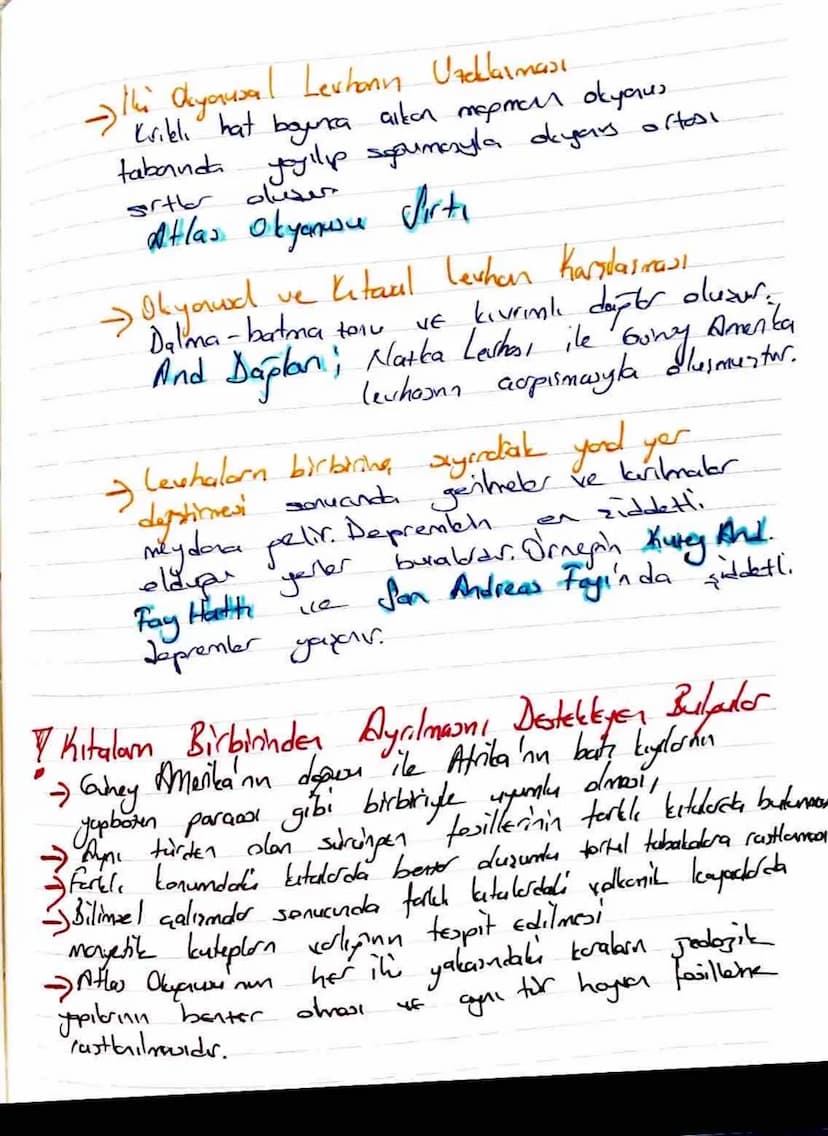 → İki Okyanusal Levhanın Uzaklaşması
Kırıklı hat boyunca çıkan magmanın okyanus
tabanında yayılıp soğumasıyla okyanus ortası
sırtlar oluşur
Atlas Okyanusu Sırtı
→ Okyanusal ve Kıtasal levhanın Karşılaşması
Dalma-batma zonu ve kıvrımlı dağlar oluşur.
And Dağları; Nazka Levhası ile Güney Amerika
levhasının çarpışmasıyla oluşmuştur.
→ Levhaların birbirine sıyırarak yanal yer
değiştirmesi sonucunda gerilmeler ve kırılmalar
meydana gelir. Depremlerin en şiddetli
olduğu yerler buralardır. Örneğin Kuzey And.
Fay Hattı ve San Andreas Fayı'nda şiddetli
depremler yaşanır.
! Kıtaların Birbirinden Ayrılmasını Destekleyen Bulgular
→ Güney Amerika'nın doğusu ile Afrika'nın batı kıyılarının
yapbozun parçası gibi birbiriyle uyumlu olması,
→ Aynı türden olan sürüngen fosillerinin farklı kıtalarda bulunması
→ Farklı konumdaki kıtalarda benzer düzümlü tortul tabakalara rastlanması
→ Bilimsel çalışmalar sonucunda farklı kıtalardaki volkanik kayaçlarda
manyetik kutupların varlığının tespit edilmesi
→ Atlas Okyanusu'nun her iki yakasındaki karaların jeolojik
yapılarının benzer olması ve aynı tür hayvan fosillerine
rastlanılmasıdır.